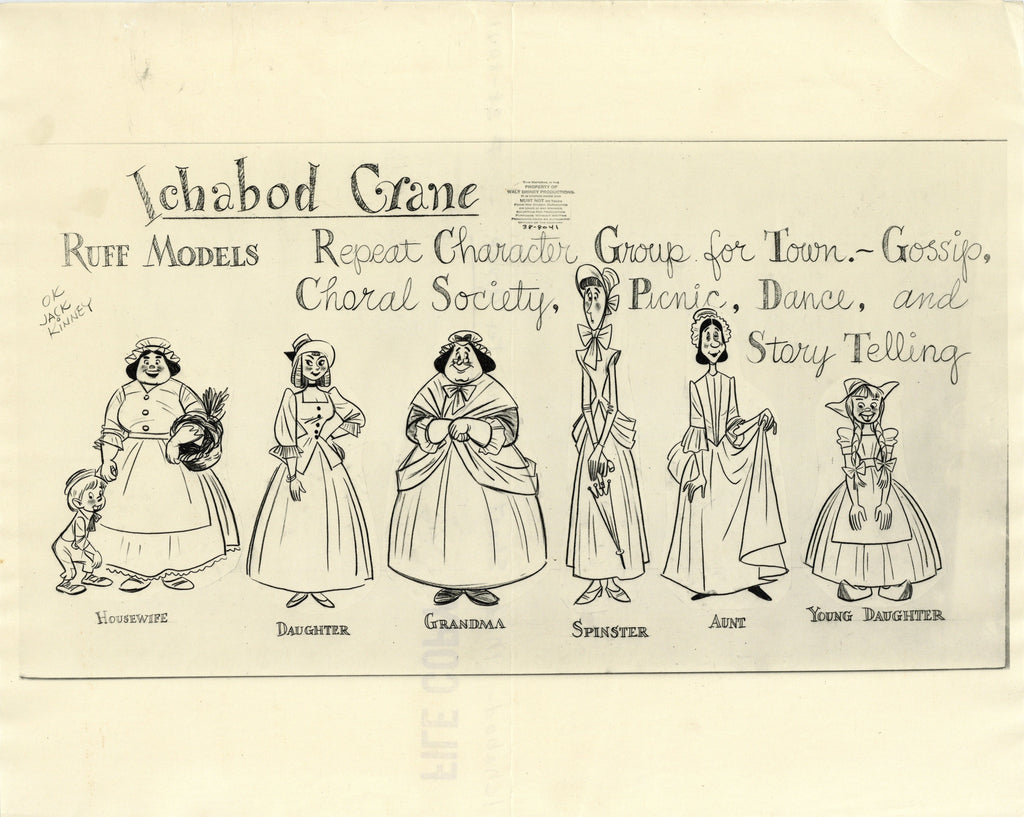 Ichabod Crane
PROPERTY OF
WALT DISNEY PRODUCTIONS.
MUST NOT
RUFF MODELS
Repeat Character Group for Town.- Gossip,
Choral Society, Picnic, Dance, and
Story Telling
OK
JACK
KINNEY
HOUSEWIFE
DAUGHTER
GRANDMA
SPINSTER
AUNT
YOUNG DAUGHTER
FILE COPY